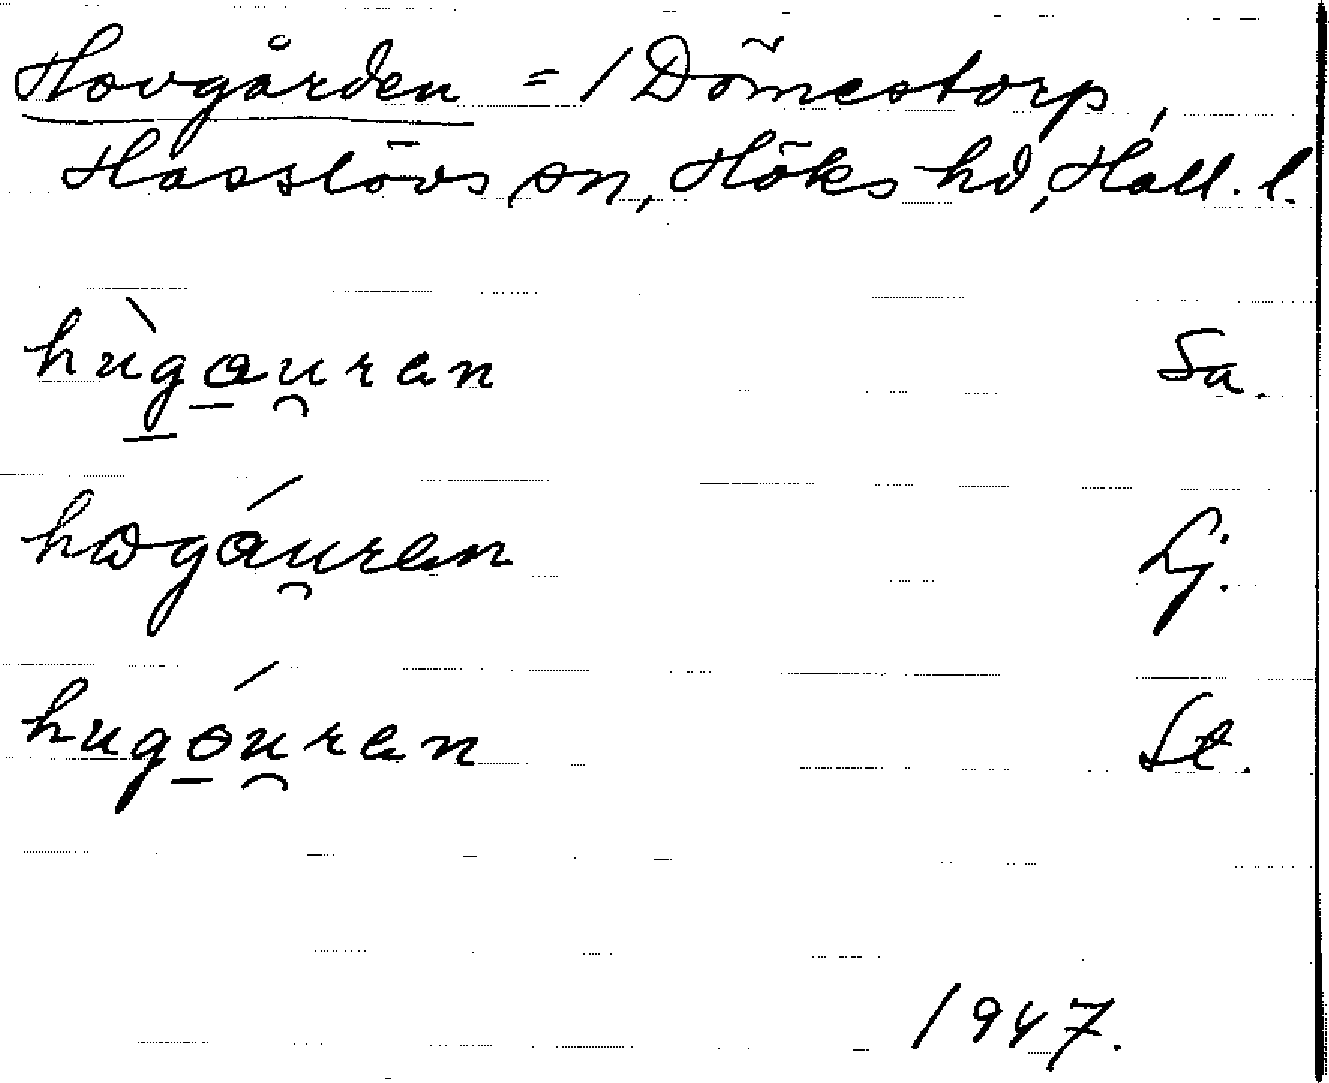 Hovgården = 1 Dömestorp,
Hasslövs sn, Höks hd, Hall. l.
hùgauran Sa.
hogáuren Lj.
hugóuran St.
1947.